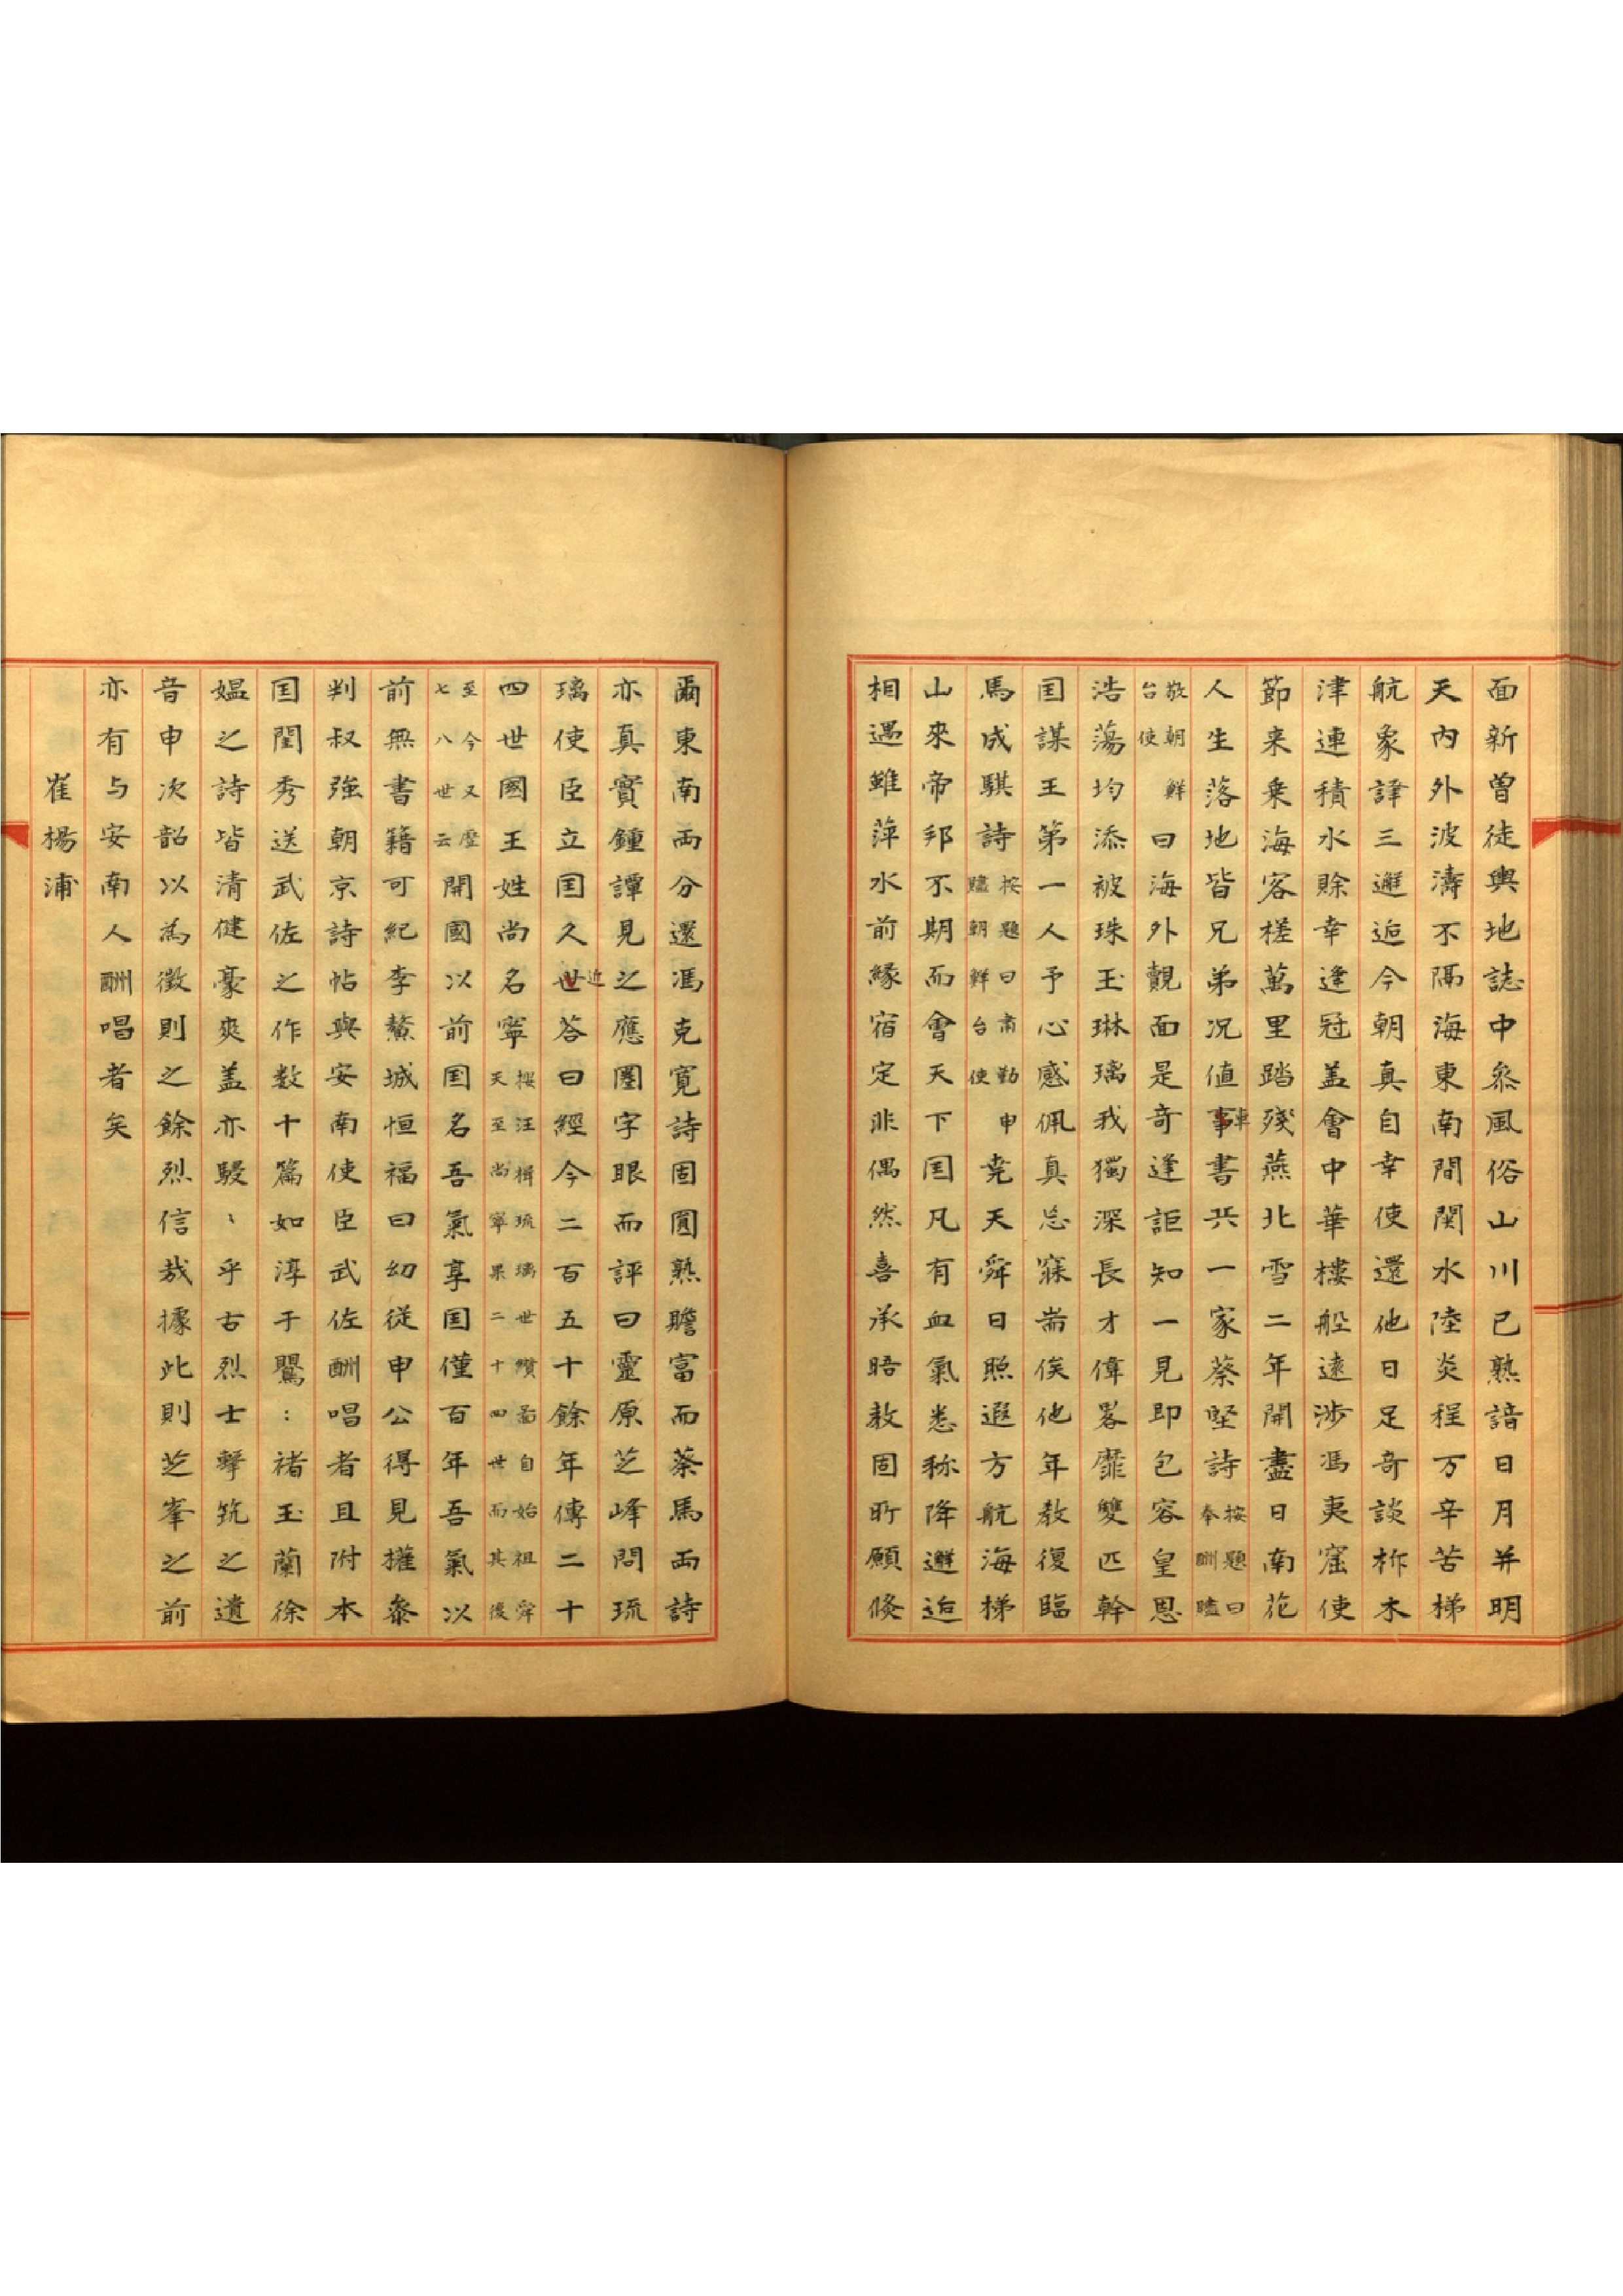 面新曾徒輿地誌中叅風俗山川已熟諳日月并明
天內外波濤不隔海東南間関水陸炎程万辛苦梯
航象譯三邂逅今朝真自幸使還他日足奇談柞木
津連積水賖幸逢冠盖會中華樓船遠渉馮夷窟使
節来乗海客槎萬里踏殘燕北雪二年開盡日南花
人生落地皆兄弟况値事車書共一家蔡堅詩按題曰奉酬贐
敬朝鮮台使曰海外覿面是奇逢詎知一見即包容皇恩
浩蕩均添被珠玉琳璃我獨深長才偉畧靡雙匹幹
囯謀王第一人予心感佩真忘寐耑俟他年教復臨
馬成騏詩按題曰肅勤贐朝鮮台使申堯天舜日照遐方航海梯
山來帝邦不期而會天下囯凡有血氣悉称降邂逅
相遇雖萍水前緣宿定非偶然喜承晤教固所願倏
爾東南両分還馮克寛詩固圓熟贍富而蔡馬両詩
亦真實鍾譚見之應圏字眼而評曰靈原芝峰問琉
璃使臣立囯久世近答曰經今二百五十餘年傳二十
四世國王姓尚名寧按汪楫琉璃世纘啚自始祖舜天至尚寧果二十四世而其後
至今又歴七八世云開國以前囯名吾氣享囯僅百年吾氣以
前無書籍可紀李鰲城恒福曰幼從申公得見權叅
判叔強朝京詩帖與安南使臣武佐酬唱者且附本
囯閨秀送武佐之作数十篇如淳于鸎:褚玉蘭徐
媼之詩皆清健豪爽盖亦駸、乎古烈士擊筑之遺
音申次韶以為徵則之餘烈信哉據此則芝峯之前
亦有与安南人酬唱者矣
崔楊浦